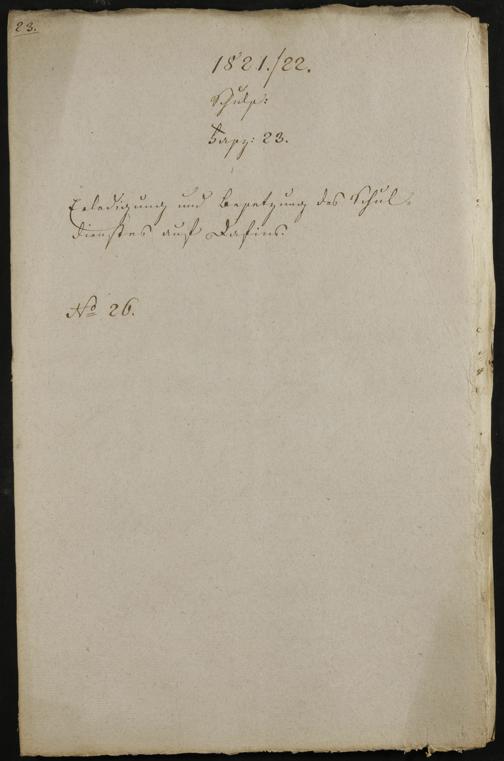 23.
1821./22.
Schulf:
Fasz: 23.
Erledigung und Besetzung des Schul-
dienstes auf Dafins.
No 26.